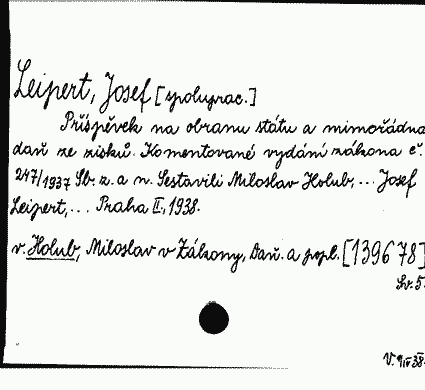 Leipert, Josef [spoluprac.]
Příspěvek na obranu státu a mimořádná
daň ze zisků. Komentované vydání zákona č.
247/1937 Sb. z. a n. Sestavili Miloslav Holub, ... Josef
Leipert, ... Praha II., 1938.
v. Holub, Miloslav v Zákony, Daň. a popl. [139678]
Sv. 5.
V. 9/IV 38.